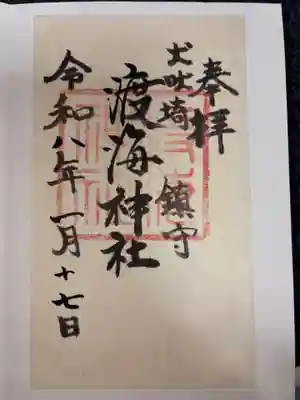 奉拝
犬吠埼 鎮守
渡海神社
令和八年 一月十七日